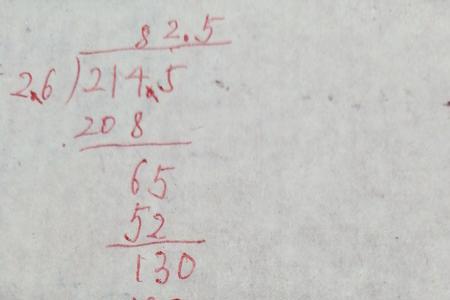 82.5
2.6)214.5
208
65
52
130